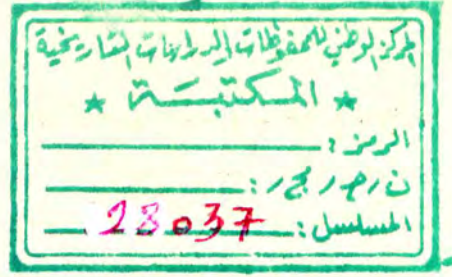 المركز الوطني للمحفوظات والدراسات التاريخية
★ المكتبة ★
الرمز :
ن ر ح ر مج ر :
المسلسل : 28037